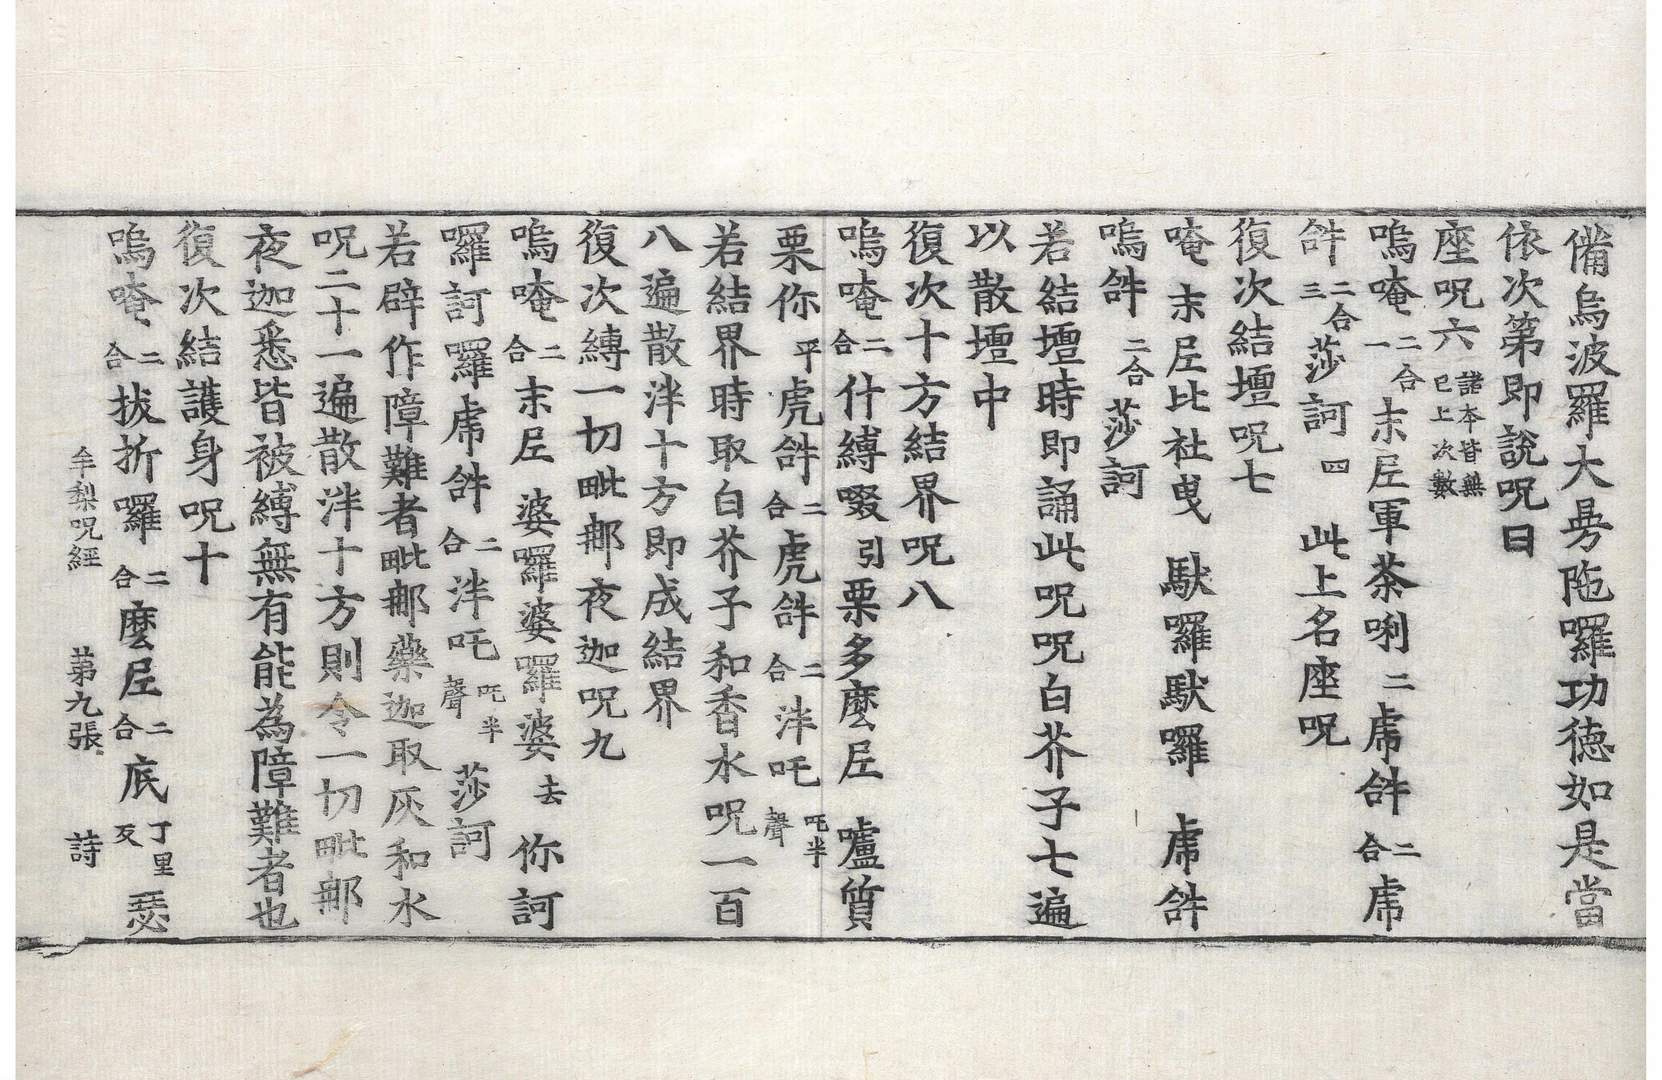 備烏波羅大㝵陁囉功德如是當
依次第即說呪曰
座呪六 諸本皆無已上次數
嗚唵二合一末𡰱軍荼唎二虖𤙖二合虖
𤙖二合三莎訶四 此上名座呪
復次結壇呪七
唵末𡰱比社曵 馱囉馱囉 虖𤙖
嗚𤙖二合莎訶
若結壇時即誦此呪呪白芥子七遍
以散壇中
復次十方結界呪八
嗚唵二合什縛啜引栗多麽𡰱 嚧質
栗你平虎𤙖二合虎𤙖二合泮吒吒半聲
若結界時取白芥子和香水呪一百
八遍散泮十方即成結界
復次縛一切毗那夜迦呪九
嗚唵二合末𡰱 婆囉婆囉婆去 你訶
囉訶囉虖𤙖二合泮吒吒半聲 莎訶
若辟作障難者毗那藥迦取灰和水
呪二十一遍散泮十方則令一切毗那
夜迦悉皆被縛無有能為障難者也
復次結護身呪十
嗚唵二合拔折囉二合麽𡰱二合底丁里反瑟
牟梨呪經 第九張 詩